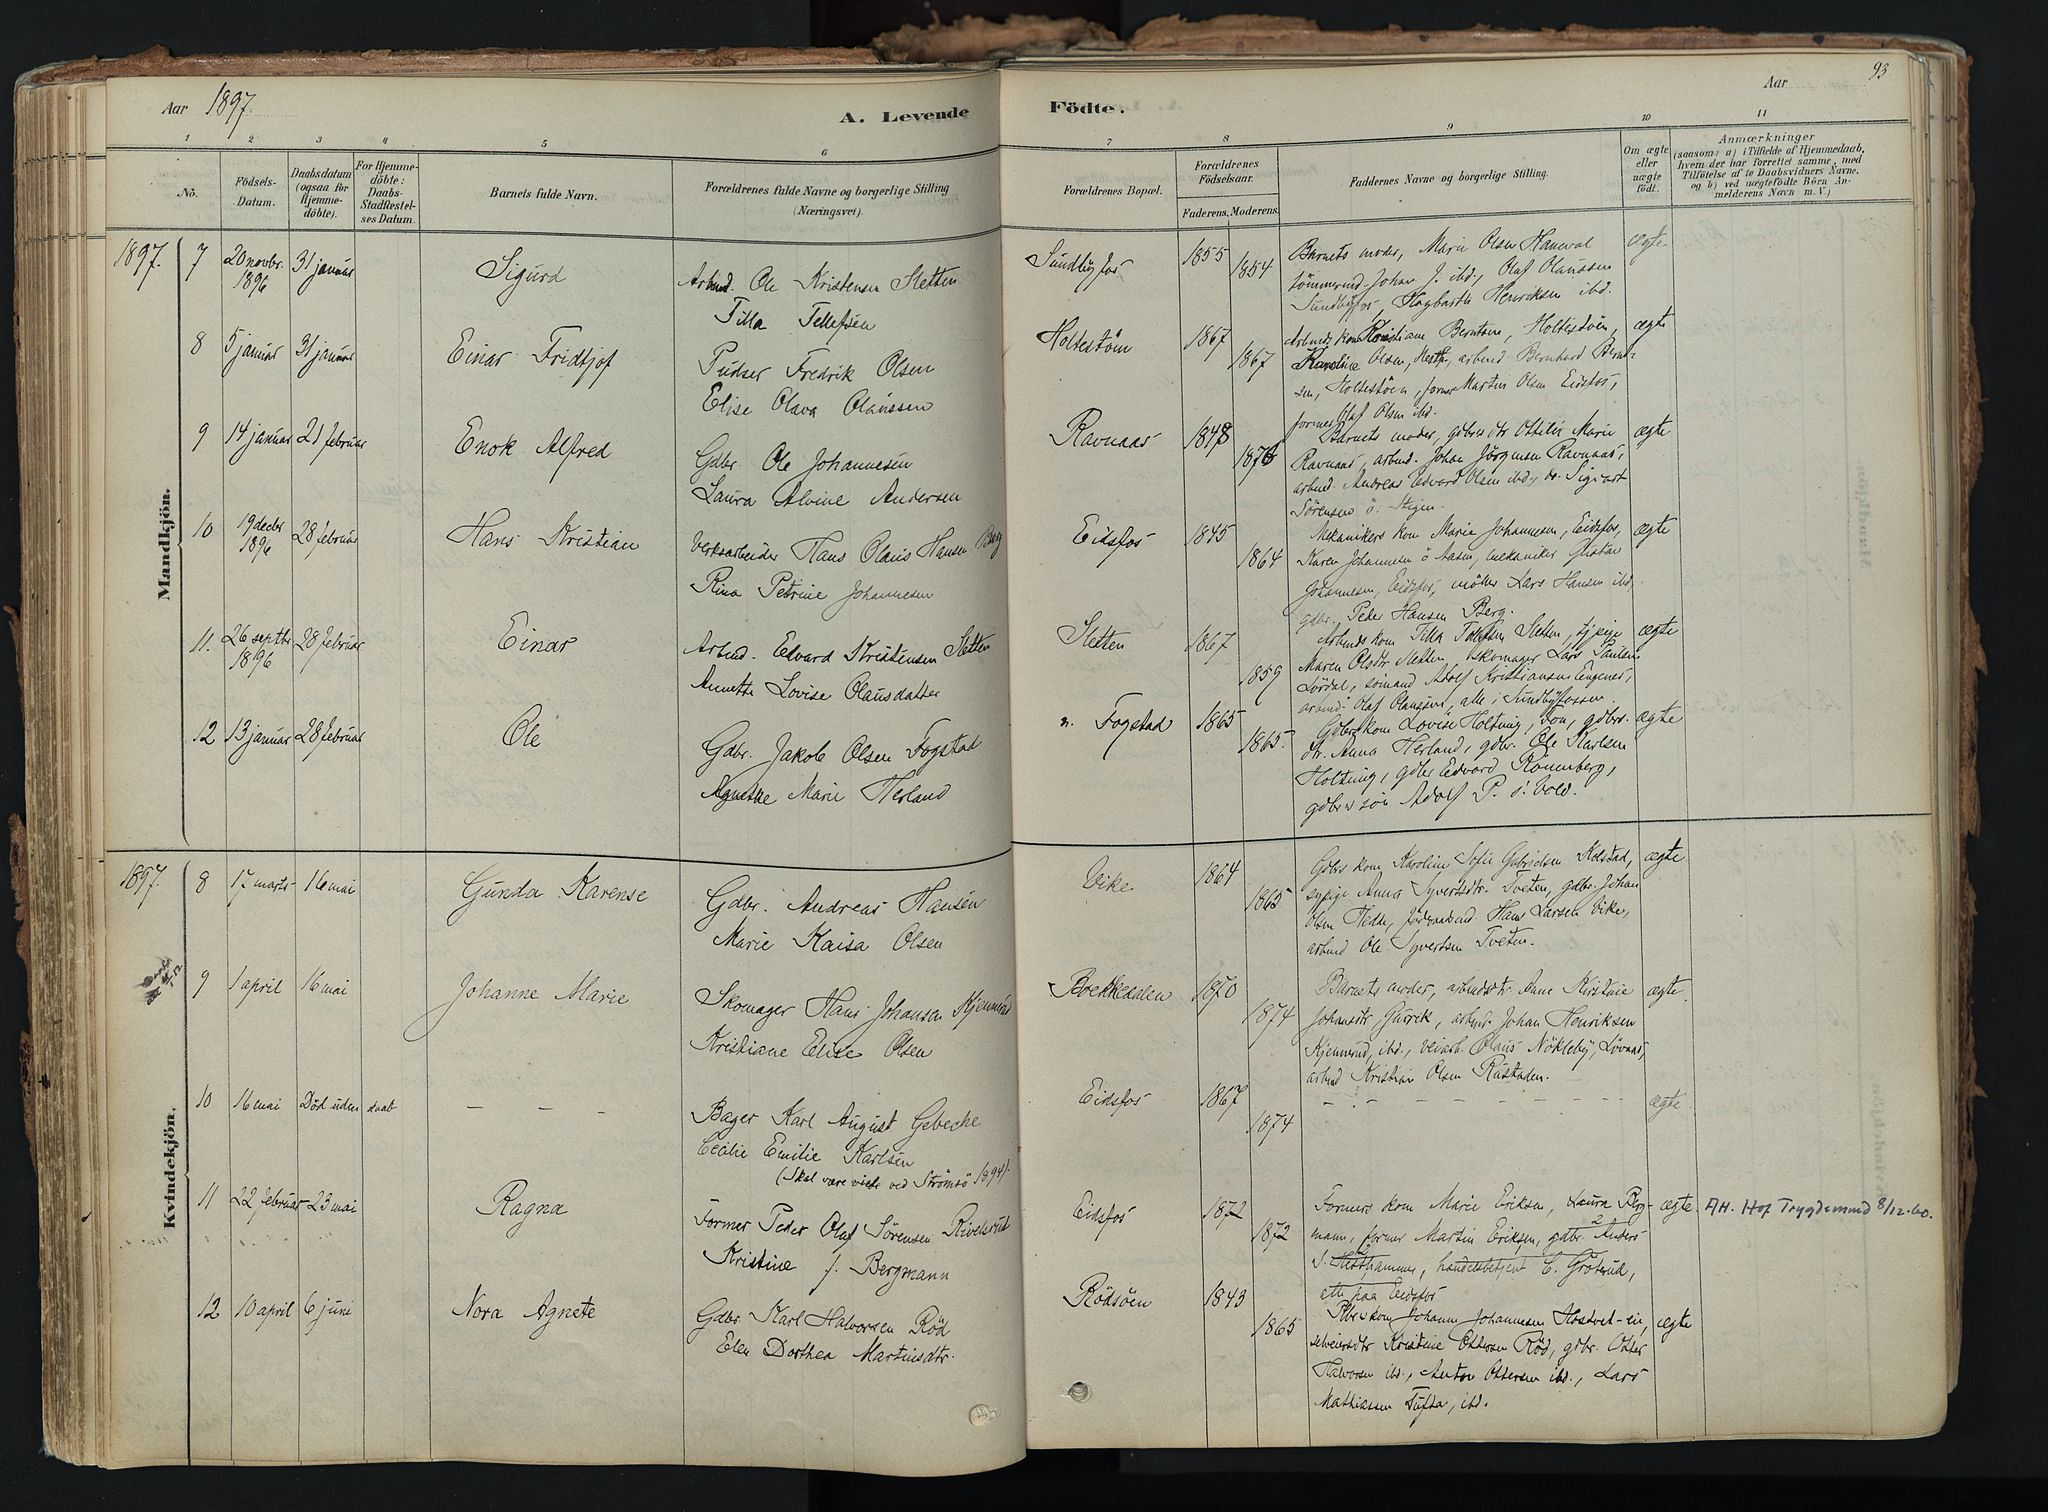 Aar 1897.
A. Levende
Födte.
Aar
93
1 2 3 4 5 6 7 8 9 10 11
No.
Födsels-
Datum.
Daabsdatum
(ogsaa for
Hjemme-
döbte).
For Hjemme-
döbte:
Daabs-
Stadfæstel-
ses Datum.
Barnets fulde Navn.
Forældrenes fulde Navne og borgerlige Stilling
(Næringsvei).
Forældrenes Bopæl.
Forældrenes
Födselsaar.
Faderens. Moderens.
Faddernes Navne og borgerlige Stilling.
Om ægte
eller
uægte
födt.
Anmærkninger
(saasom: a) i Tilfælde af Hjemmedaab,
hvem der har forrettet samme, med
Tilföielse af to Daabsvidners Navne.
og b) ved uægtefödte Börn An-
melderens Navn m. V.)
Mandkjön.
1897. 7 20 novbr. 1896 31 januar
Sigurd
Arbmd. Ole Kristensen Sletten
Tilla Tellefsen
Sundbyfos
1855
1854
Barnets moder, Marie Olsen Haneval
tömmermd. Johan J. ibd., Olaf Olaussen
Sundbyfos, Hagbarth Henriksen ibd.
ægte
8 5 januar 31 januar
Einar Fridtjof
Pudser Fredrik Olsen
Elise Olava Olaussen
1867
1867
Arbmds kone Kristiane Berntsen,
Karoline Olsen, arbmd Bernhard Bernt-
sen, Holtestöen, former Martin Olsen Eidsfos,
former Olaf Olsen ibd.
ægte
9 14 januar 21 februar
Enok Alfred
Gdbr. Ole Johannesen
Laura Alvine Andersen
Ravnaas
1848
1876
Barnets moder, gdbrs dtr Ottilie Marie
Ravnaas, arbmd. Johan Jörgensen Ravnaas,
arbmd. Andreas Edvard Olsen ibd., do. Sigvart
Sörensen ö. Stigen.
ægte
10 19 decbr 1896 28 februar
Hans Kristian
Verksarbeider Hans Olaus Hansen Berg
Rina Petrine Johannesen
Eidsfos
1845
1864
Mekanikers kone Maria Johannesen, Eidsfos,
Karen Johannesen ö Aasen, mekaniker Gustav
Johannesen, Eidsfos, möller Lars Hansen ibd,
gdbr. Peder Hansen Berg.
ægte
11. 26 septbr 1896 28 februar
Einar
Arbmd. Edvard Kristensen Sletten
Annette Lovise Olausdatter
Sletten
1867
1859
Arbmds kone Tilla Tellefsen Sletten, pige
Maren Olsdtr Sletten, skomager Lars Paulsen
Lördal, sömand Adolf Kristiansen Engenes,
arbmd Olaf Olaussen, alle i Sundbyfossen.
ægte
12 13 januar 28 februar
Ole
Gdbr. Jakob Olsen Fogstad
Agnethe Marie Herland
n. Fogstad
1865
1865.
Gdbrs kone Lovise Holtung, Von, gdbrs.
dr. Anna Herland, gdbr. Ole Karlsen
Holtung, gdbr Edvard Rönneberg,
gdbrs sön Adolf P. s. Vold.
ægte
Kvindekjön.
1897. 8 17 marts 16 mai
Gunda Karense
Gdbr. Andreas Hansen
Marie Kaisa Olsen
Vike
1864
1865
Gdbrs kone Karoline Sofie Gabrielsen Kolstad,
sypige Anna Syvertsdtr. Tveten, gdbr. Johan
Olsen Hedn, Hans Larsen Vike,
arbmd Ole Syvertsen Tveten.
ægte
9 1 april 16 mai
Johanne Marie
Skomager Hans Johansen Kjenmrud
Kristiane Elise Olsen
Bækkedalen
1870
1874
Barnets moder, arbmdsdtr Anne Kristine
Johansdtr Gurrik, arbmd. Johan Henriksen
Kjenmrud, ibd., veiarb. Olaus Nökleby, Lövaas,
arbmd Kristian Olsen Rustaden.
ægte.
10 16 mai Död uden daab
— — —
Bager Karl August Gebeche
Cecilie Emilie Karlsen
(Skal være viede ved Strömsö 1894).
Eidsfos
1867
1874
— — — — — — — —
ægte.
11 22 februar 23 mai
Ragna
Former Peder Olaf Sörensen Rivelsrud
Kristine J. Bergmann
Eidsfos
1872
1872
Formers kone Marie Eriksen, Laura Berg-
mann, former Martin Eriksen, gdbr. Anders
S. Hesthammer, handelsbetjent C. Grötrud,
alle paa Eidsfos
ægte
AH. Hof Trygdemnd 8/12.60.
12 10 april 6 juni
Nora Agnete
Gdbr Karl Halvorsen Röd
Elen Dorthea Martinsdtr.
Rödsöen
1843
1865
Gdbrs kone Johanne Johannesen Hostvet-eie,
selveiersdtr Kristine Ottersen Röd, gdbr. Otter
Halvorsen ibd., Anton Ottersen ibd., Lars
Mathiassen Tufta, ibd.
ægte